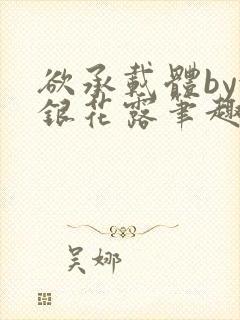 欲承載體by
銀花露筆趣
吴娜